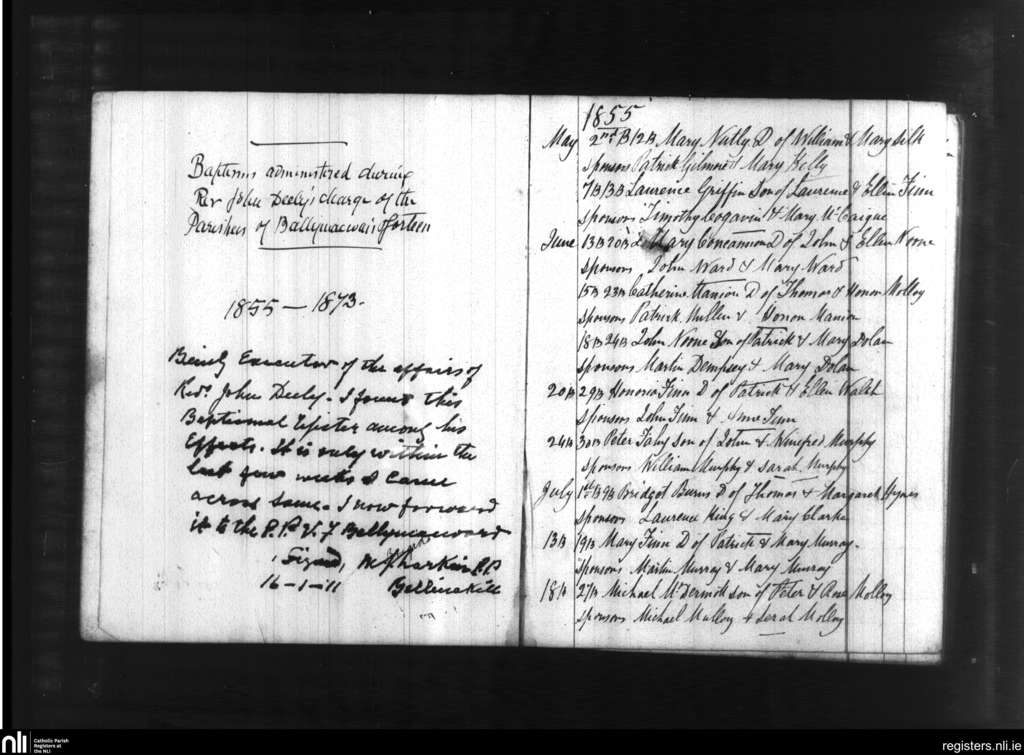 Baptisms administered during
Rev John Deely's charge of the
Parishes of Ballymacward &
1855 — 1873.
Being Executor of the affairs of
Revd. John Deely. I found this
Baptismal Register among his
Effects. It is only within the
last few weeks I came
across same. I now forward
it to the P.P. V.F Ballymacward
Signed, Larkin P.P
16-1-11 Ballinakill
1855
May 2nd B 12B Mary Nutly D of William & Mary
sponsors Patrick Gilmore & Mary Kelly
7B 13B Laurence Griffin Son of Laurence & Ellin Finn
sponsors Timothy Cogavin & Mary McCaigue
June 13B 20B Mary Concannon D of John & Ellen Noone
sponsors John Ward & Mary Ward
15B 23B Catherine Manion D of Thomas & Honor Molloy
sponsors Patrick Mullen & Honor Manion
18B 24B John Noone Son of Patrick & Mary Dolan
sponsors Martin Dempsey & Mary Dolan
20B 29B Honoria Finn D of Patrick & Ellen Walsh
sponsors John Finn & Anne Finn
24B 30B Peter Fahy Son of John & Winefred Murphy
sponsors William Murphy & Sarah Murphy
July 1st B 9B Bridget Burns D of Thomas & Margaret Hynes
sponsors Laurence King & Mary Clarke
13B 19B Mary Finn D of Patrick & Mary Murray.
sponsors Martin Murray & Mary Murray
18B 27B Michael McDermott son of Peter & Rose Molloy
sponsors Michael Mulloy & Serah Molloy
nli Catholic Parish
Registers at
the NLI
registers.nli.ie